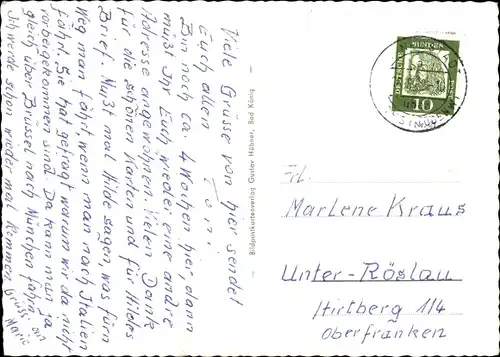 Viele Grüsse von hier sendet
Euch allen Toni.
Bin noch ca. 4 Wochen hier, dann
müßt Ihr Euch wieder eine andre
Adresse angewöhnen. Vielen Dank
für die schönen Karten und für Hildes
Brief. Mußt mal Hilde sagen, was fürn
Weg man fährt wenn man nach Italien
fährt. Sie hat gefragt warum wir da nicht
vorbeigekommen sind. Da kann man ja
gleich über Brüssel nach München fahren
Ich werde schon wieder mal kommen
Gruss
Marie
Bildpostkartenverlag Gustav Hübner, Bad König
DEUTSCHE
10
Frl.
Marlene Kraus
Unter-Röslau
Hirtberg 1/4
Oberfranken